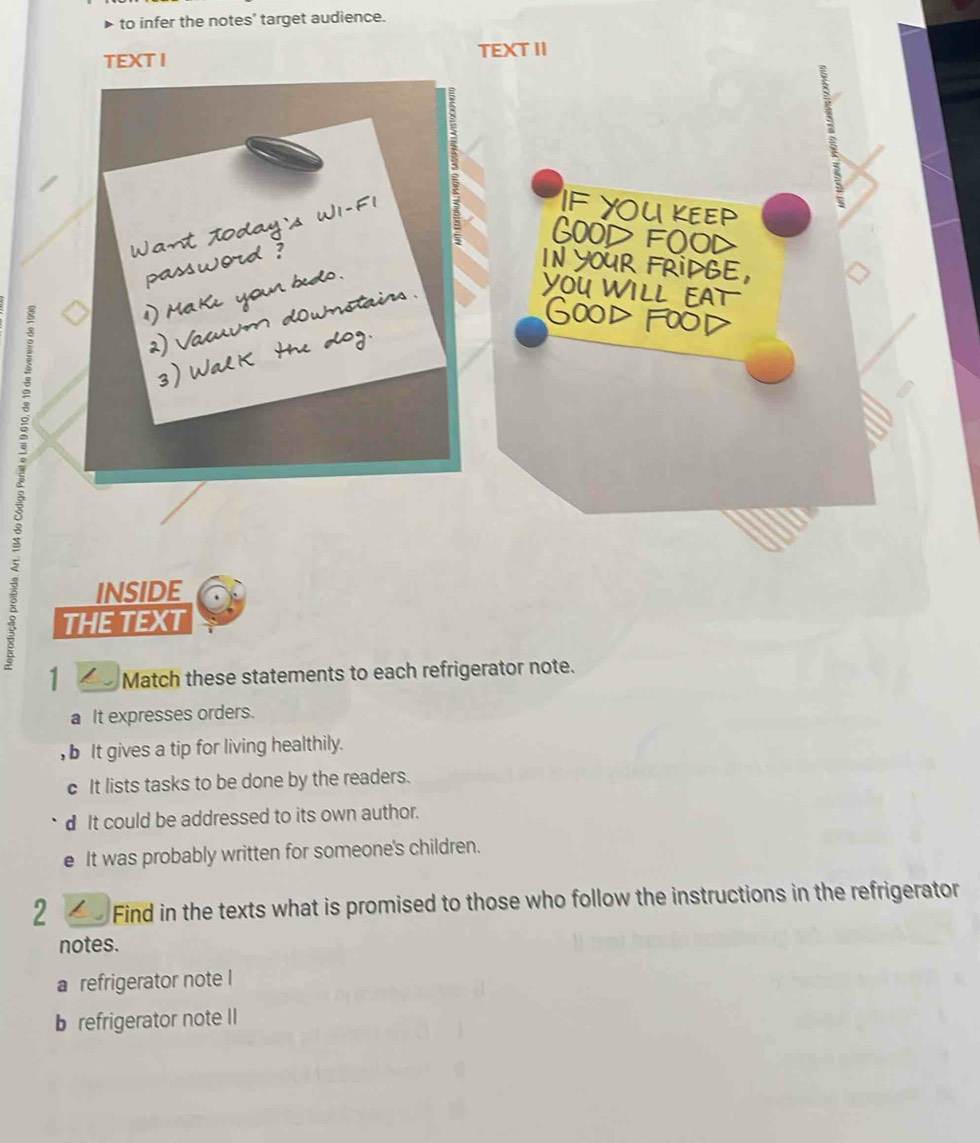 ▸ to infer the notes' target audience.
TEXT I
TEXT II
Want today's WI-FI
password?
1) Make your beds.
2) Vacuum downstairs.
3) Walk the dog.
IF YOU KEEP
GOOD FOOD
IN YOUR FRIDGE,
YOU WILL EAT
GOOD FOOD
Reprodução proibida. Art. 184 do Código Penal e Lei 9.610, de 19 de fevereiro de 1998.
INSIDE
THE TEXT
1 Match these statements to each refrigerator note.
a It expresses orders.
b It gives a tip for living healthily.
c It lists tasks to be done by the readers.
d It could be addressed to its own author.
e It was probably written for someone's children.
2 Find in the texts what is promised to those who follow the instructions in the refrigerator
notes.
a refrigerator note I
b refrigerator note II